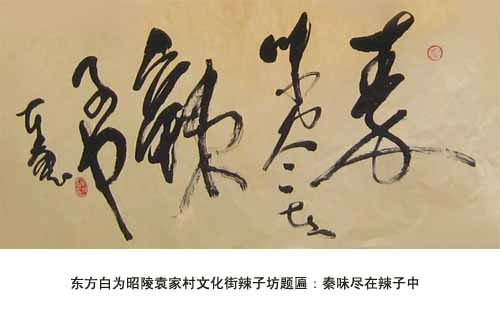 秦
味尽在
辣
子中
东方白
东方白为昭陵袁家村文化街辣子坊题匾：秦味尽在辣子中